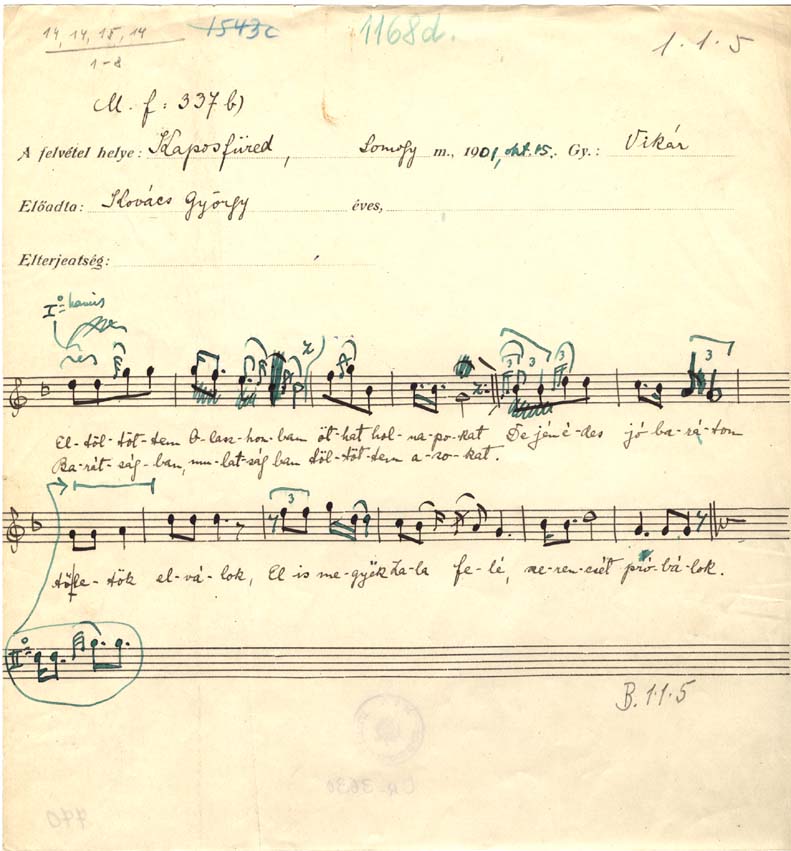 14, 14, 15, 14 1543c 1168d. 1.1.5
1-8
M. f: 337 b)
A felvétel helye: Kaposfüred, Somogy m., 1901, okt. 15. Gy.: Vikár
Előadta: Kovács György éves,
Elterjedtség:
I° hamis
3 3 3 3
El-töl-töt-tem O-lasz-hon-ban öt-hat hol-na-po-kat De jén é-des jó ba-rá-tom
Ba-rát-ság-ban, mu-lat-ság ban töl-töt-tem a-zo-kat.
3
tőle-tök el-vá-lok, El is me-gyëk Za-la fe-lé, sze-ren-csét pró-bá-lok.
II°
B. 1.1.5
770